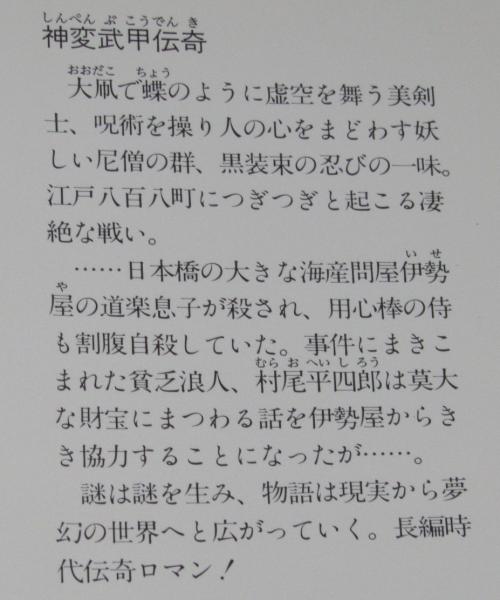 しんぺん ぶ こうでん き
神変武甲伝奇
おおだこ ちょう
大凧で蝶のように虚空を舞う美剣
士、呪術を操り人の心をまどわす妖
しい尼僧の群、黒装束の忍びの一味。
江戸八百八町につぎつぎと起こる凄
絶な戦い。
……日本橋の大きな海産問屋伊勢
い せ
屋の道楽息子が殺され、用心棒の侍
や
も割腹自殺していた。事件にまきこ
まれた貧乏浪人、村尾平四郎は莫大
むら お へい し ろう
な財宝にまつわる話を伊勢屋からき
き協力することになったが……。
謎は謎を生み、物語は現実から夢
幻の世界へと広がっていく。長編時
代伝奇ロマン！